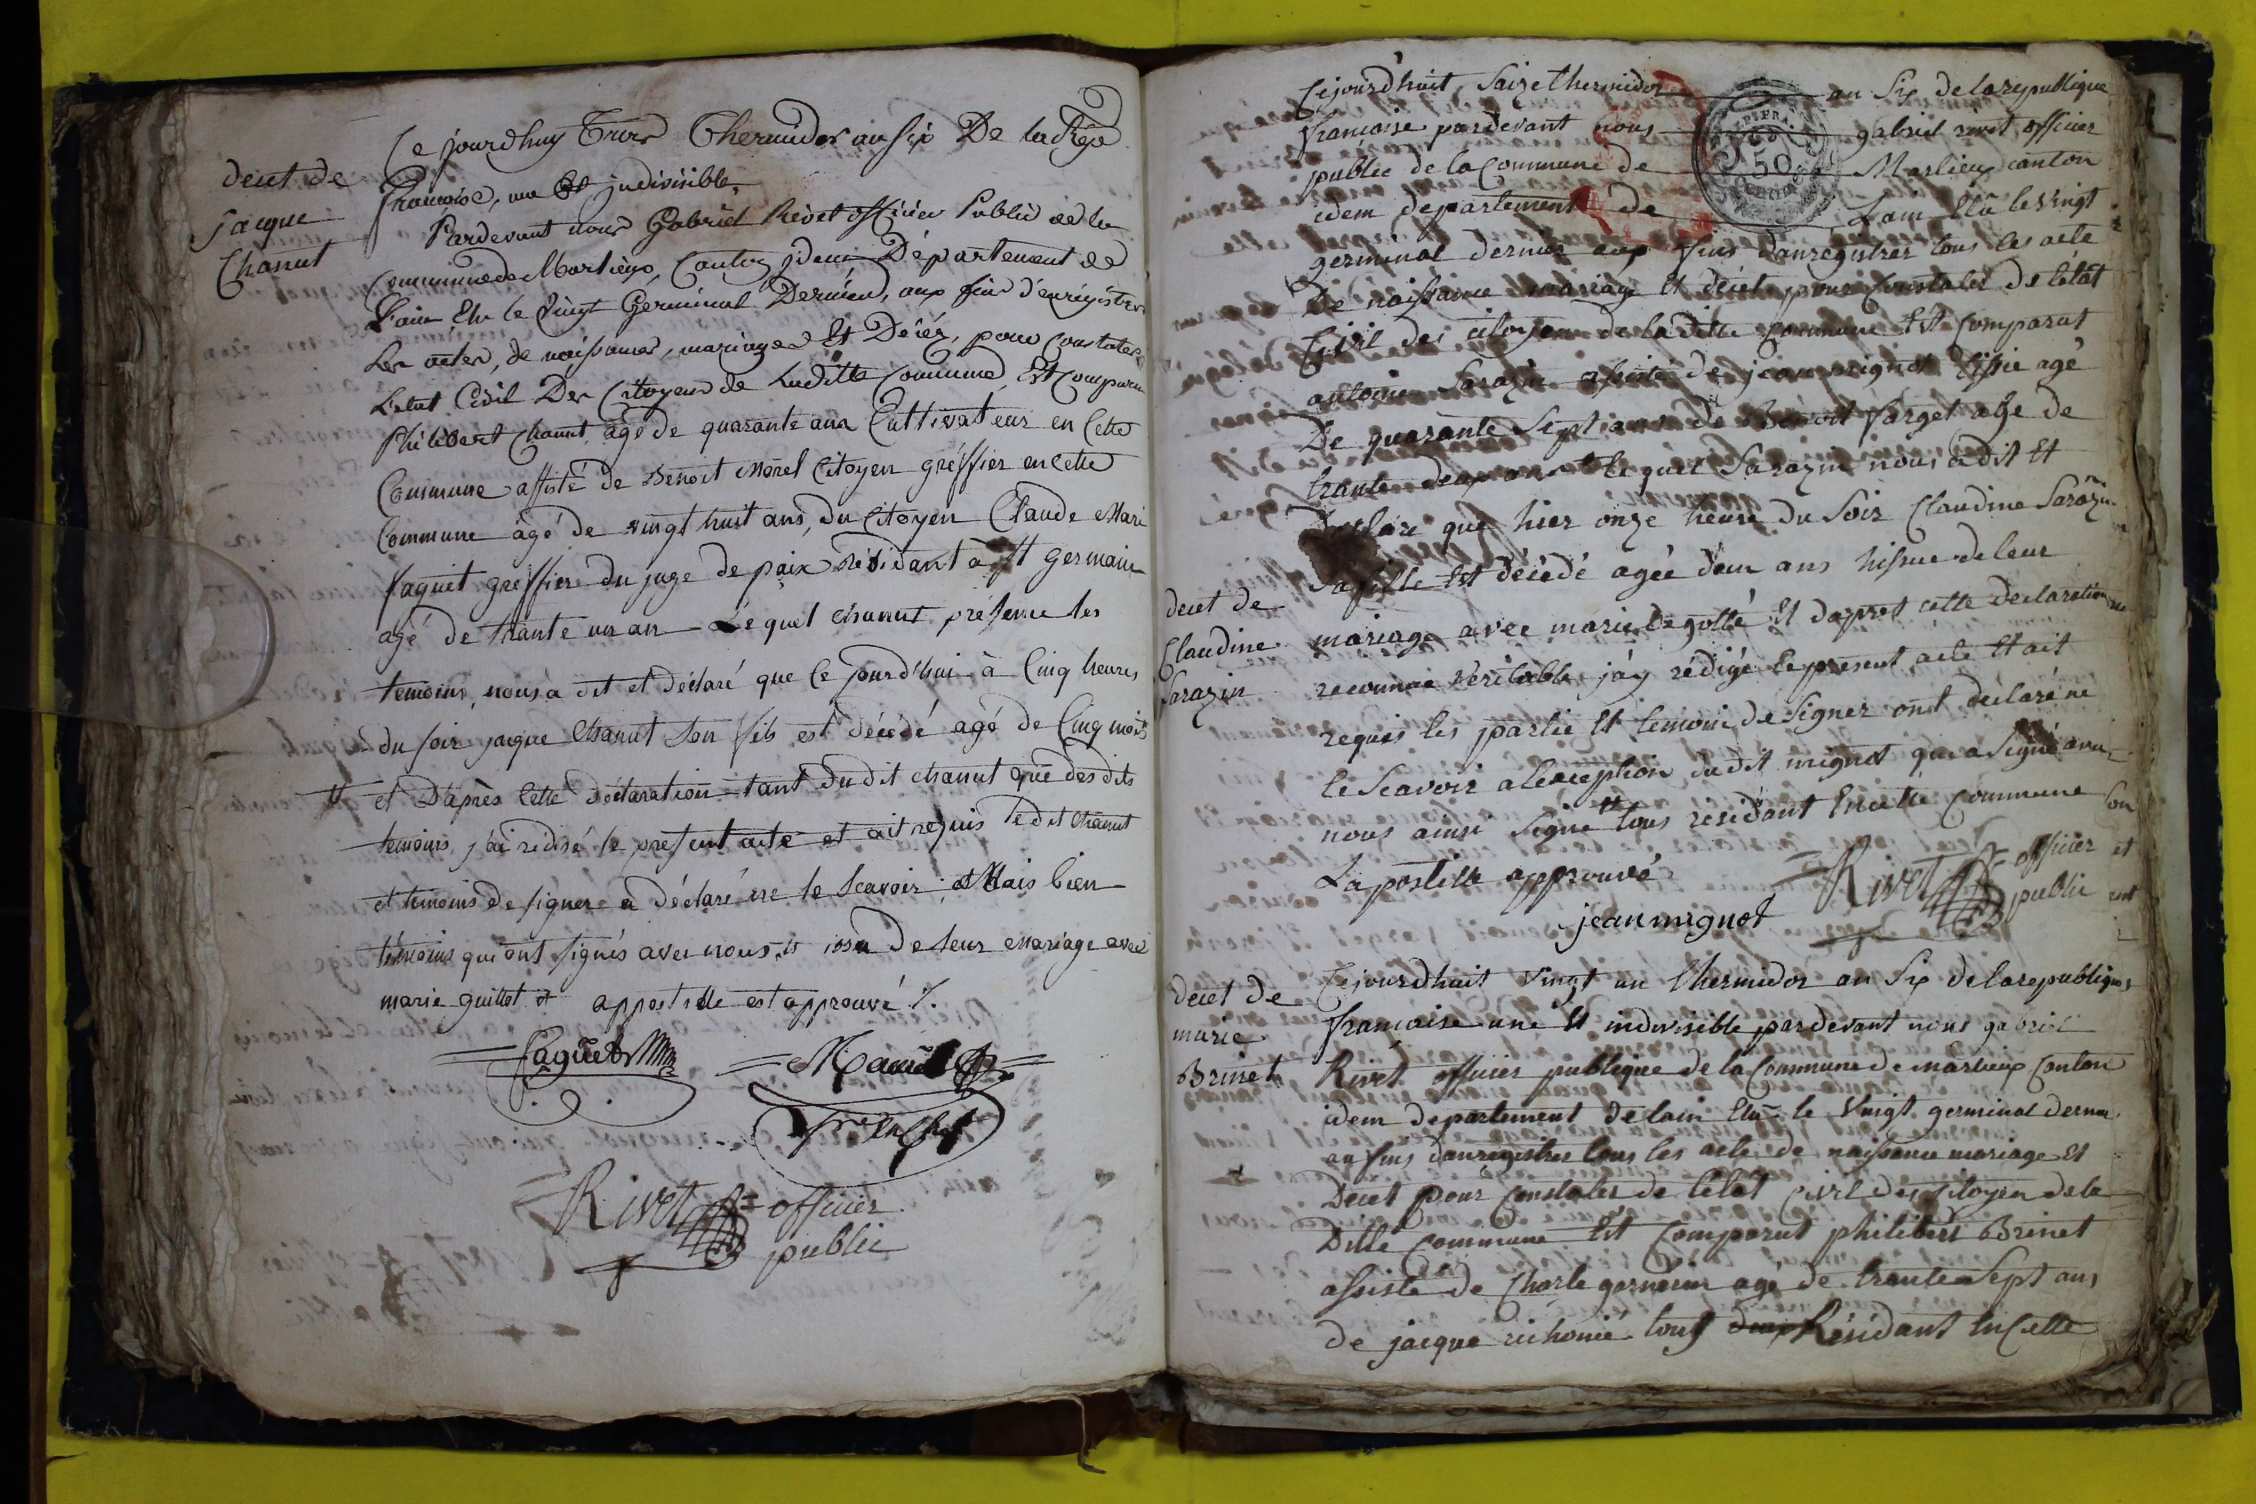 decet de
jacque
Chanut
Ce jourdhuy Trois Thermidor an six De la Rep.
françoise, une Et jndivisible,
Pardevant nous Gabriel Rivet officier Public de la
Commune de Marlieux, Canton jdem Département de
L'ain Elu le Vingt Germinal Dernier, aux fin d'enrégistrer
Les actes, de naissances, mariages Et Décés, pour Constater
L'etat Civil Des Citoyens de Laditte Commune, Est Comparu
Philibert Chanut, agé de quarante ans Cultivateur en Cette
Commune assisté de Benoit Morel Citoyen gréffier en Cette
Commune agé de vingt huit ans, du Citoyen Claude Marie
faguet greffier du juge de paix résidant à St germain
agé de trante un an Le quel Chanut présence les
temoins, nous a dit et déclaré que Ce jourd'hui à Cinq heures
du soir jacque Chanut Son fils est décédé agé de Cinq mois
et D'après Cette déclaration tant dudit chanut que des dits
temoins j'ai rédisé le présent acte et ait requis ledit Chanut
et temoins de signer a déclaré ne le scavoir, Mais bien
témoins qui ont signés avec nous, issu De leur mariage avec
marie guillot et appostille est approuvé ./.
faguet
Rivet officier
public
Cejourd'huit Saize thermidor an Six de la republique
francoise pardevant nous gabriel rivet officier
public de la Commune de Marlieux canton
idem departement de Lain Elû le Vingt
germinal dernier aux fins d'anregistrer tous les acte
De naissance mariage Et décet pour Constater de l'état
Civil des citoyen de la ditte Commune Est Comparut
antoine Sarazin assisté de jean mignot agé
De quarante Sept ans de Benoit farget age de
trante deux ans le quel Sarazin nous a dit Et
Declare que hier onze heure du Soir Claudine Sarazin
decet de
Claudine
Sarazin
Sa fille Est décédé agée d'un ans hissue de leur
mariage avec marie Et dapret cette declaration
reconnue véritable j'ay rédigé le présent acte Et ait
requis les partie Et temoin de Signer ont déclaré ne
le Scavoir a lexception du dit mignot qui a Signé avec
nous ainsi Signé tous résidant En cette Commune
Lapostille approuvé
jean mignot
Rivet officier
public
decet de
marie
Brinet
Cejourdhuit vingt un thermidor an Six de la republique
francoise une Et indivisible pardevant nous gabriel
Rivet officier publique de la Commune de marlieux Canton
idem departement de lain Elû le Vingt germinal dernier
au fins danregistrer tous les acte de naissance mariage Et
Decet pour Constater de l'état Civil des Citoyen de la
Ditte Commune Est Comparut philibert Brinet
assisté de Charle agé de trante Sept ans
de jacque tous Résidant En Cette